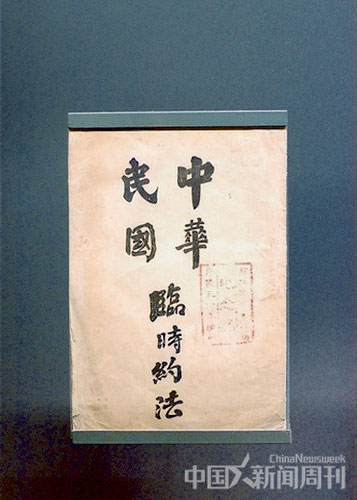 中華
民國
臨時約法
ChinaNewsweek
中国新闻周刊